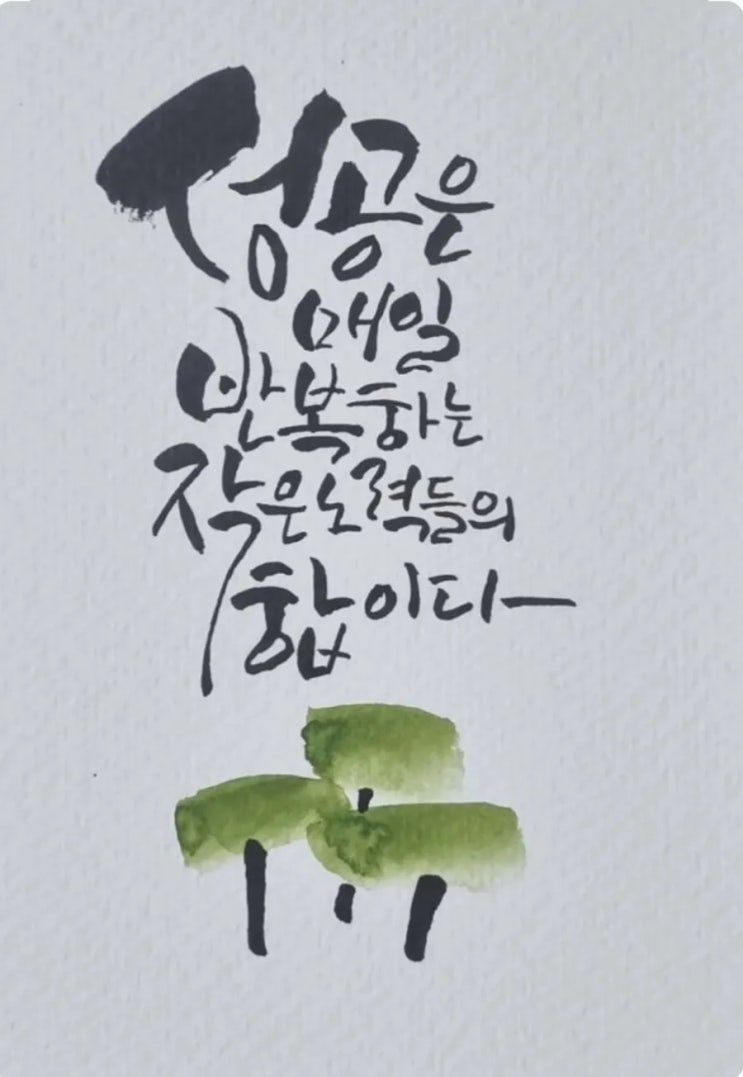 성공은
매일
반복하는
작은노력들의
합이다